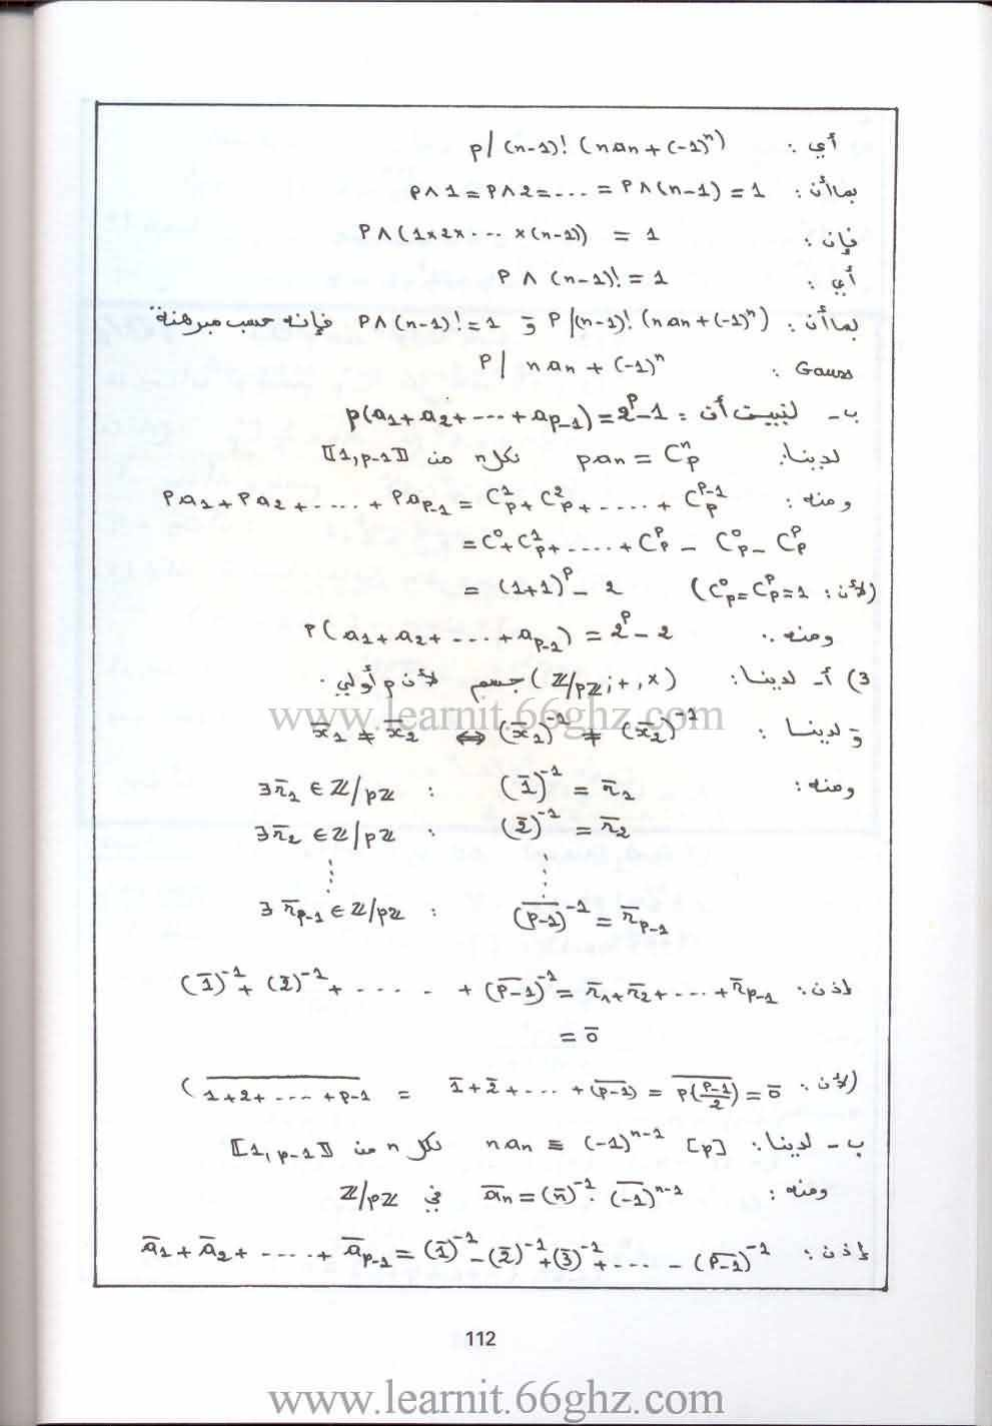 أي : p/ (n-1)! (nan + (-1)ⁿ)
بما أن : p∧1 = p∧2 = ... = p∧(n-1) = 1
فإن : P∧(1×2×... ×(n-1)) = 1
أي : P ∧ (n-1)! = 1
بما أن : P/(n-1)! (nan+(-1)ⁿ) و P∧(n-1)! = 1 فإنه حسب مبرهنة
Gauss : P/ nan + (-1)ⁿ
ب - لنبيت أن : p(a₁+a₂+---+a_{p-1}) = 2^p-1
لدينا : pan = C_p^n لكل n من ⟦1,p-1⟧
ومنه : Pa₁+Pa₂+....+Pa_{p-1} = C_p^1+C_p^2+.....+C_p^{p-1}
= C_p^0+C_p^1+.....+C_p^p - C_p^0 - C_p^p
= (1+1)^p - 2 (لأن : C_p^0=C_p^p=1)
ومنه : P(a₁+a₂+---+a_{p-1}) = 2^p - 2
3) أ - لدينا : (ℤ/pℤ ; + , ×) جسم لأن p أولي .
www.learnit.66ghz.com
و لدينا : x̄₁ ≠ x̄₂ ⇔ (x̄₁)⁻¹ ≠ (x̄₂)⁻¹
ومنه : ∃r̄₁ ∈ ℤ/pℤ : (1̄)⁻¹ = r̄₁
∃r̄₂ ∈ ℤ/pℤ : (2̄)⁻¹ = r̄₂
⋮ ⋮
∃ r̄_{p-1} ∈ ℤ/pℤ : (\overline{p-1})⁻¹ = r̄_{p-1}
إذن : (1̄)⁻¹ + (2̄)⁻¹ + ..... + (\overline{p-1})⁻¹ = r̄₁+r̄₂+...+r̄_{p-1}
= 0̄
(لأن : \overline{1+2+---+p-1} = 1̄+2̄+...+(\overline{p-1}) = \overline{p(\frac{p-1}{2})} = 0̄)
ب - لدينا : nan ≡ (-1)^{n-1} [p] لكل n من ⟦1, p-1⟧
ومنه : ān = (n̄)⁻¹ . (\overline{-1})^{n-1} في ℤ/pℤ
إذن : ā₁+ā₂+----+ā_{p-1} = (1̄)⁻¹-(2̄)⁻¹+(3̄)⁻¹+... - (\overline{p-1})⁻¹
112
www.learnit.66ghz.com